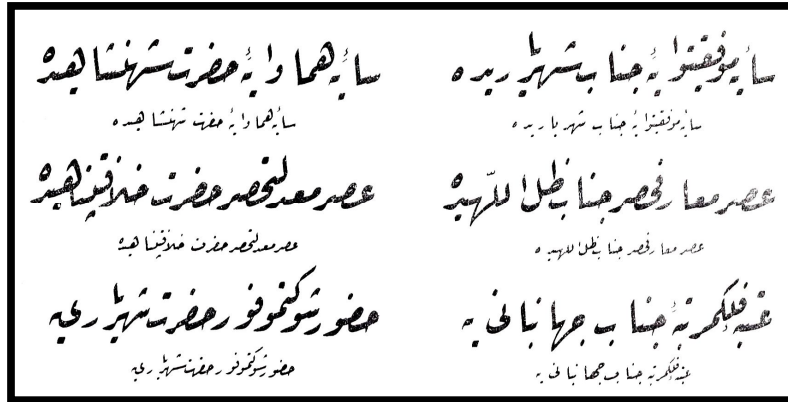 سایۀ موفقیتوایۀ جناب شهریاریده
سایۀ موفقیتوایۀ جناب شهریاریده
عصر معارفحصر جناب ظل اللّهیده
عصر معارفحصر جناب ظل اللهیده
عتبۀ فلکمرتبۀ جناب جهانبانی یه
عتبۀ فلکمرتبۀ جناب جهانبانی یه
سایۀ هماوایۀ حضرت شهنشاهیده
سایۀ هماوایۀ حضرت شهنشاهیده
عصر معدلتحصر حضرت خلافتپناهیده
عصر معدلتحصر حضرت خلافتپناهیده
حضور شوکتموفور حضرت شهریاری
حضور شوکتموفور حضرت شهریاری